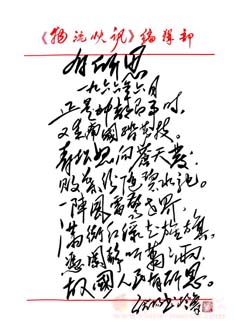 《物流快讯》编辑部
有所思
一九六六年六月
正是神都有事时
又来南國踏芳枝。
青松怒向蒼天發
败叶纷随碧水驰。
一陣風雷驚世界
满街红绿走旌旗。
凭阑静听萧雨
故國人民有所思。